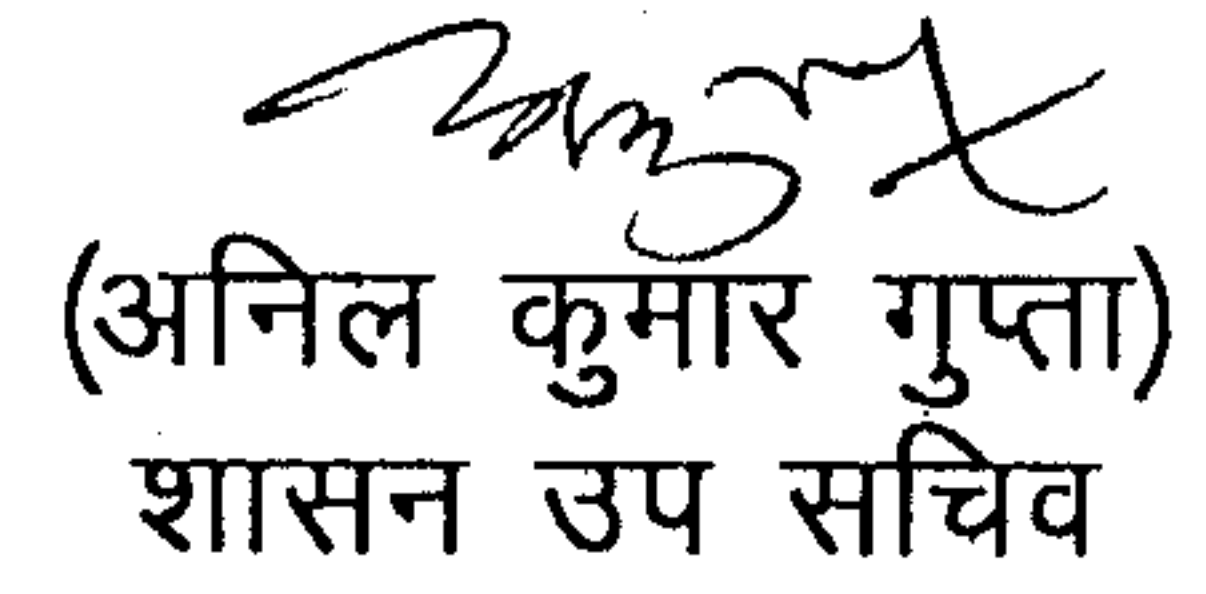 (अनिल कुमार गुप्ता)
शासन उप सचिव